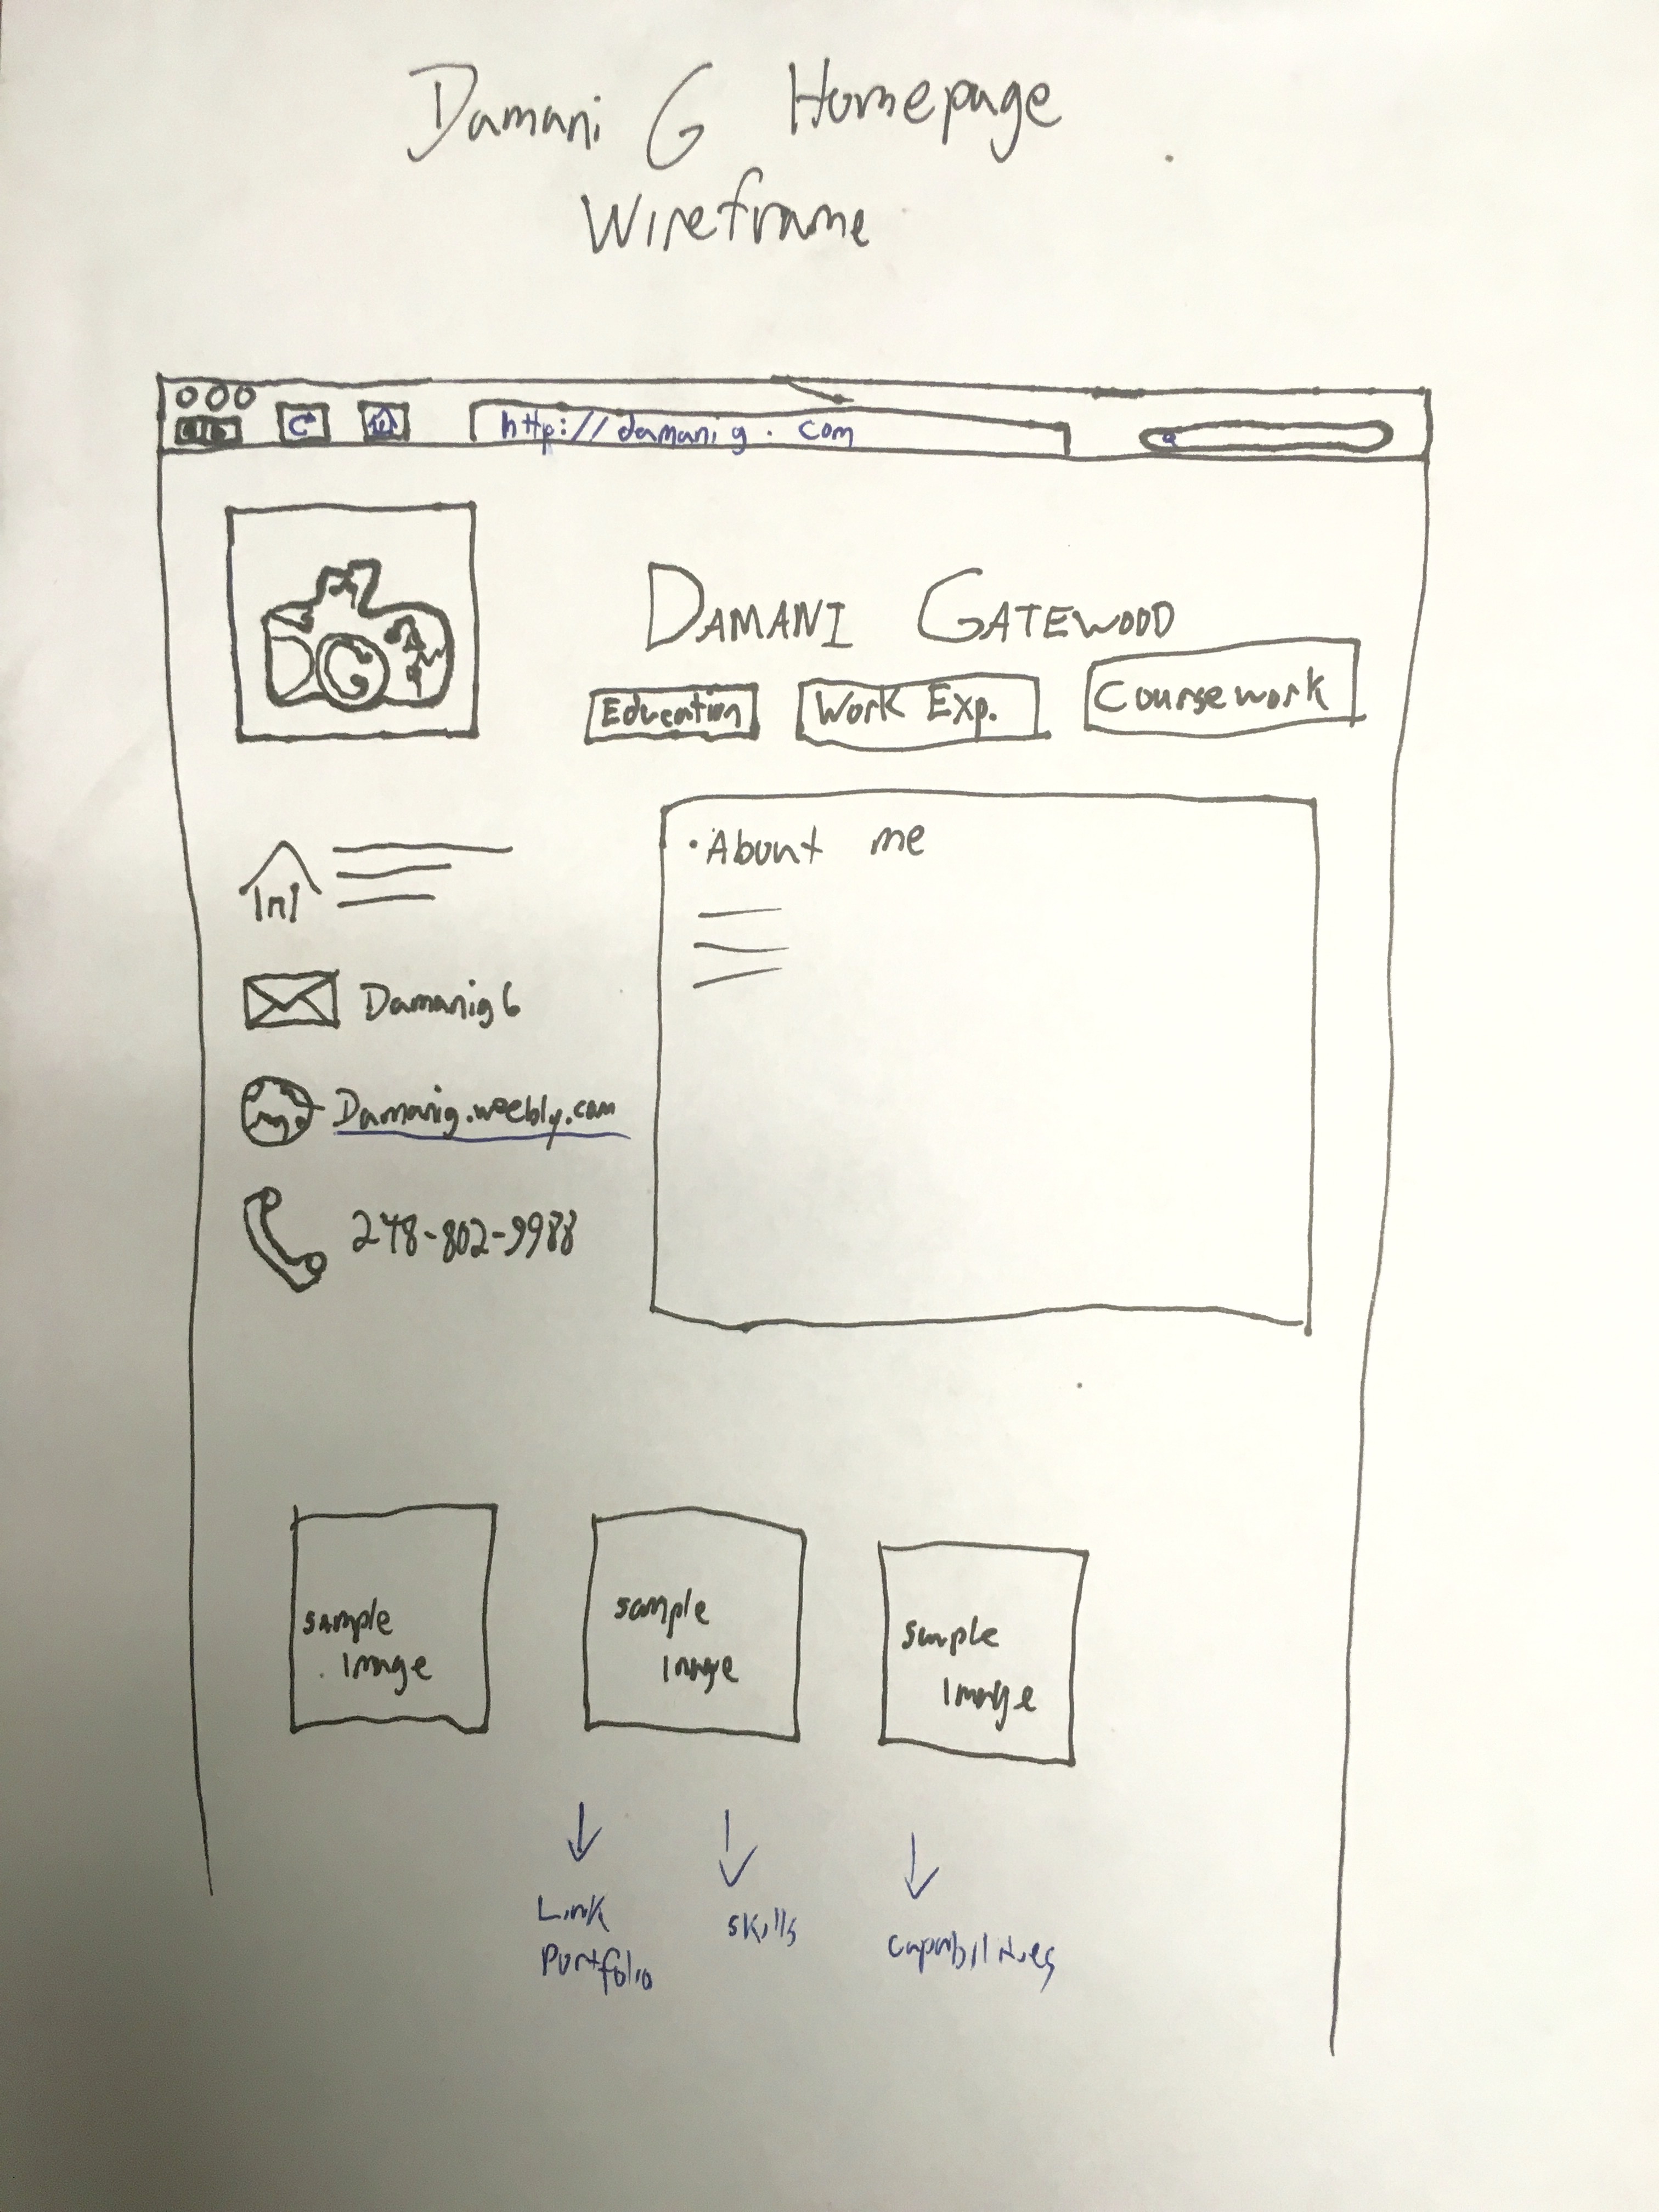 Damani G Homepage
Wireframe
http://damanig.com
DAMANI GATEWOOD
Education
Work Exp.
Coursework
• About me
Damanig6
Damanig.weebly.com
248-802-9988
sample
image
sample
image
sample
image
Link
Portfolio
skills
capabilities